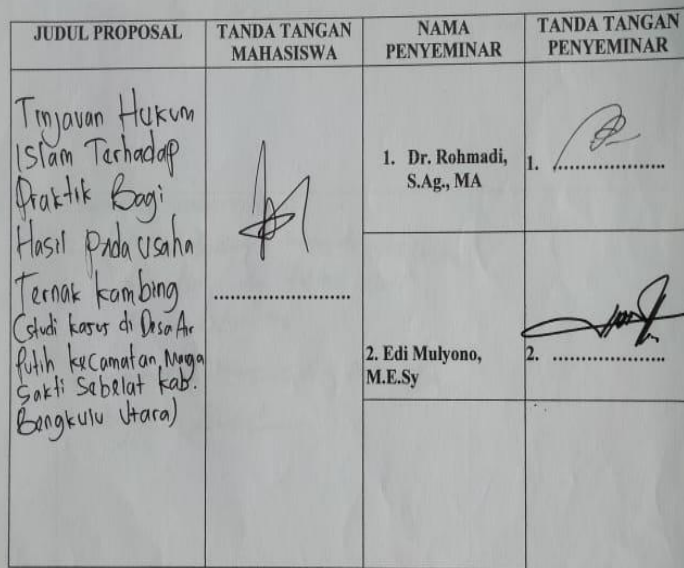 JUDUL PROPOSAL
TANDA TANGAN
MAHASISWA
NAMA
PENYEMINAR
TANDA TANGAN
PENYEMINAR
Tinjauan Hukum
Islam Terhadap
Praktik Bagi
Hasil Pada Usaha
Ternak kambing
(studi kasus di Desa Air
Putih kecamatan Marga
Sakti Sebelat kab.
Bengkulu Utara)
.........................
1. Dr. Rohmadi,
S.Ag., MA
1. ....................
2. Edi Mulyono,
M.E.Sy
2. ....................